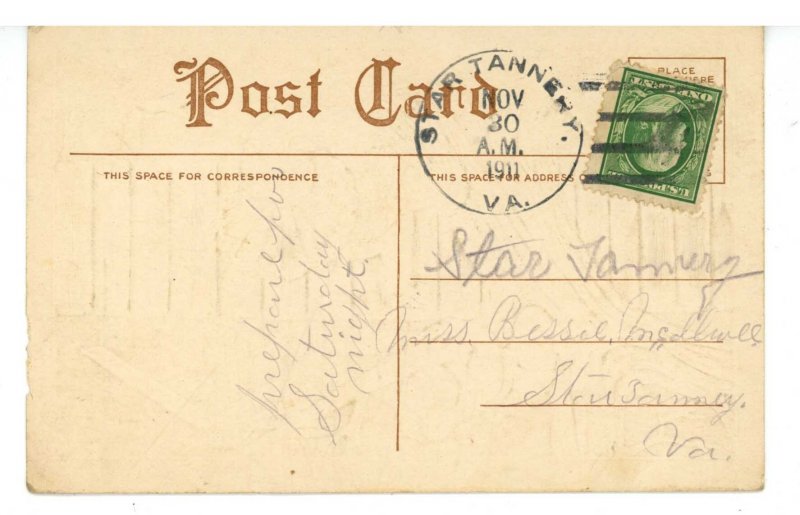 Post Card
PLACE
HERE
STAR TANNERY.
NOV
30
A.M.
1911
VA.
THIS SPACE FOR CORRESPONDENCE
THIS SPACE FOR ADDRESS O
prepare for
Saturday
night.
Star Tannery
Miss Bessie McIlwee
Star Tannery.
Va.